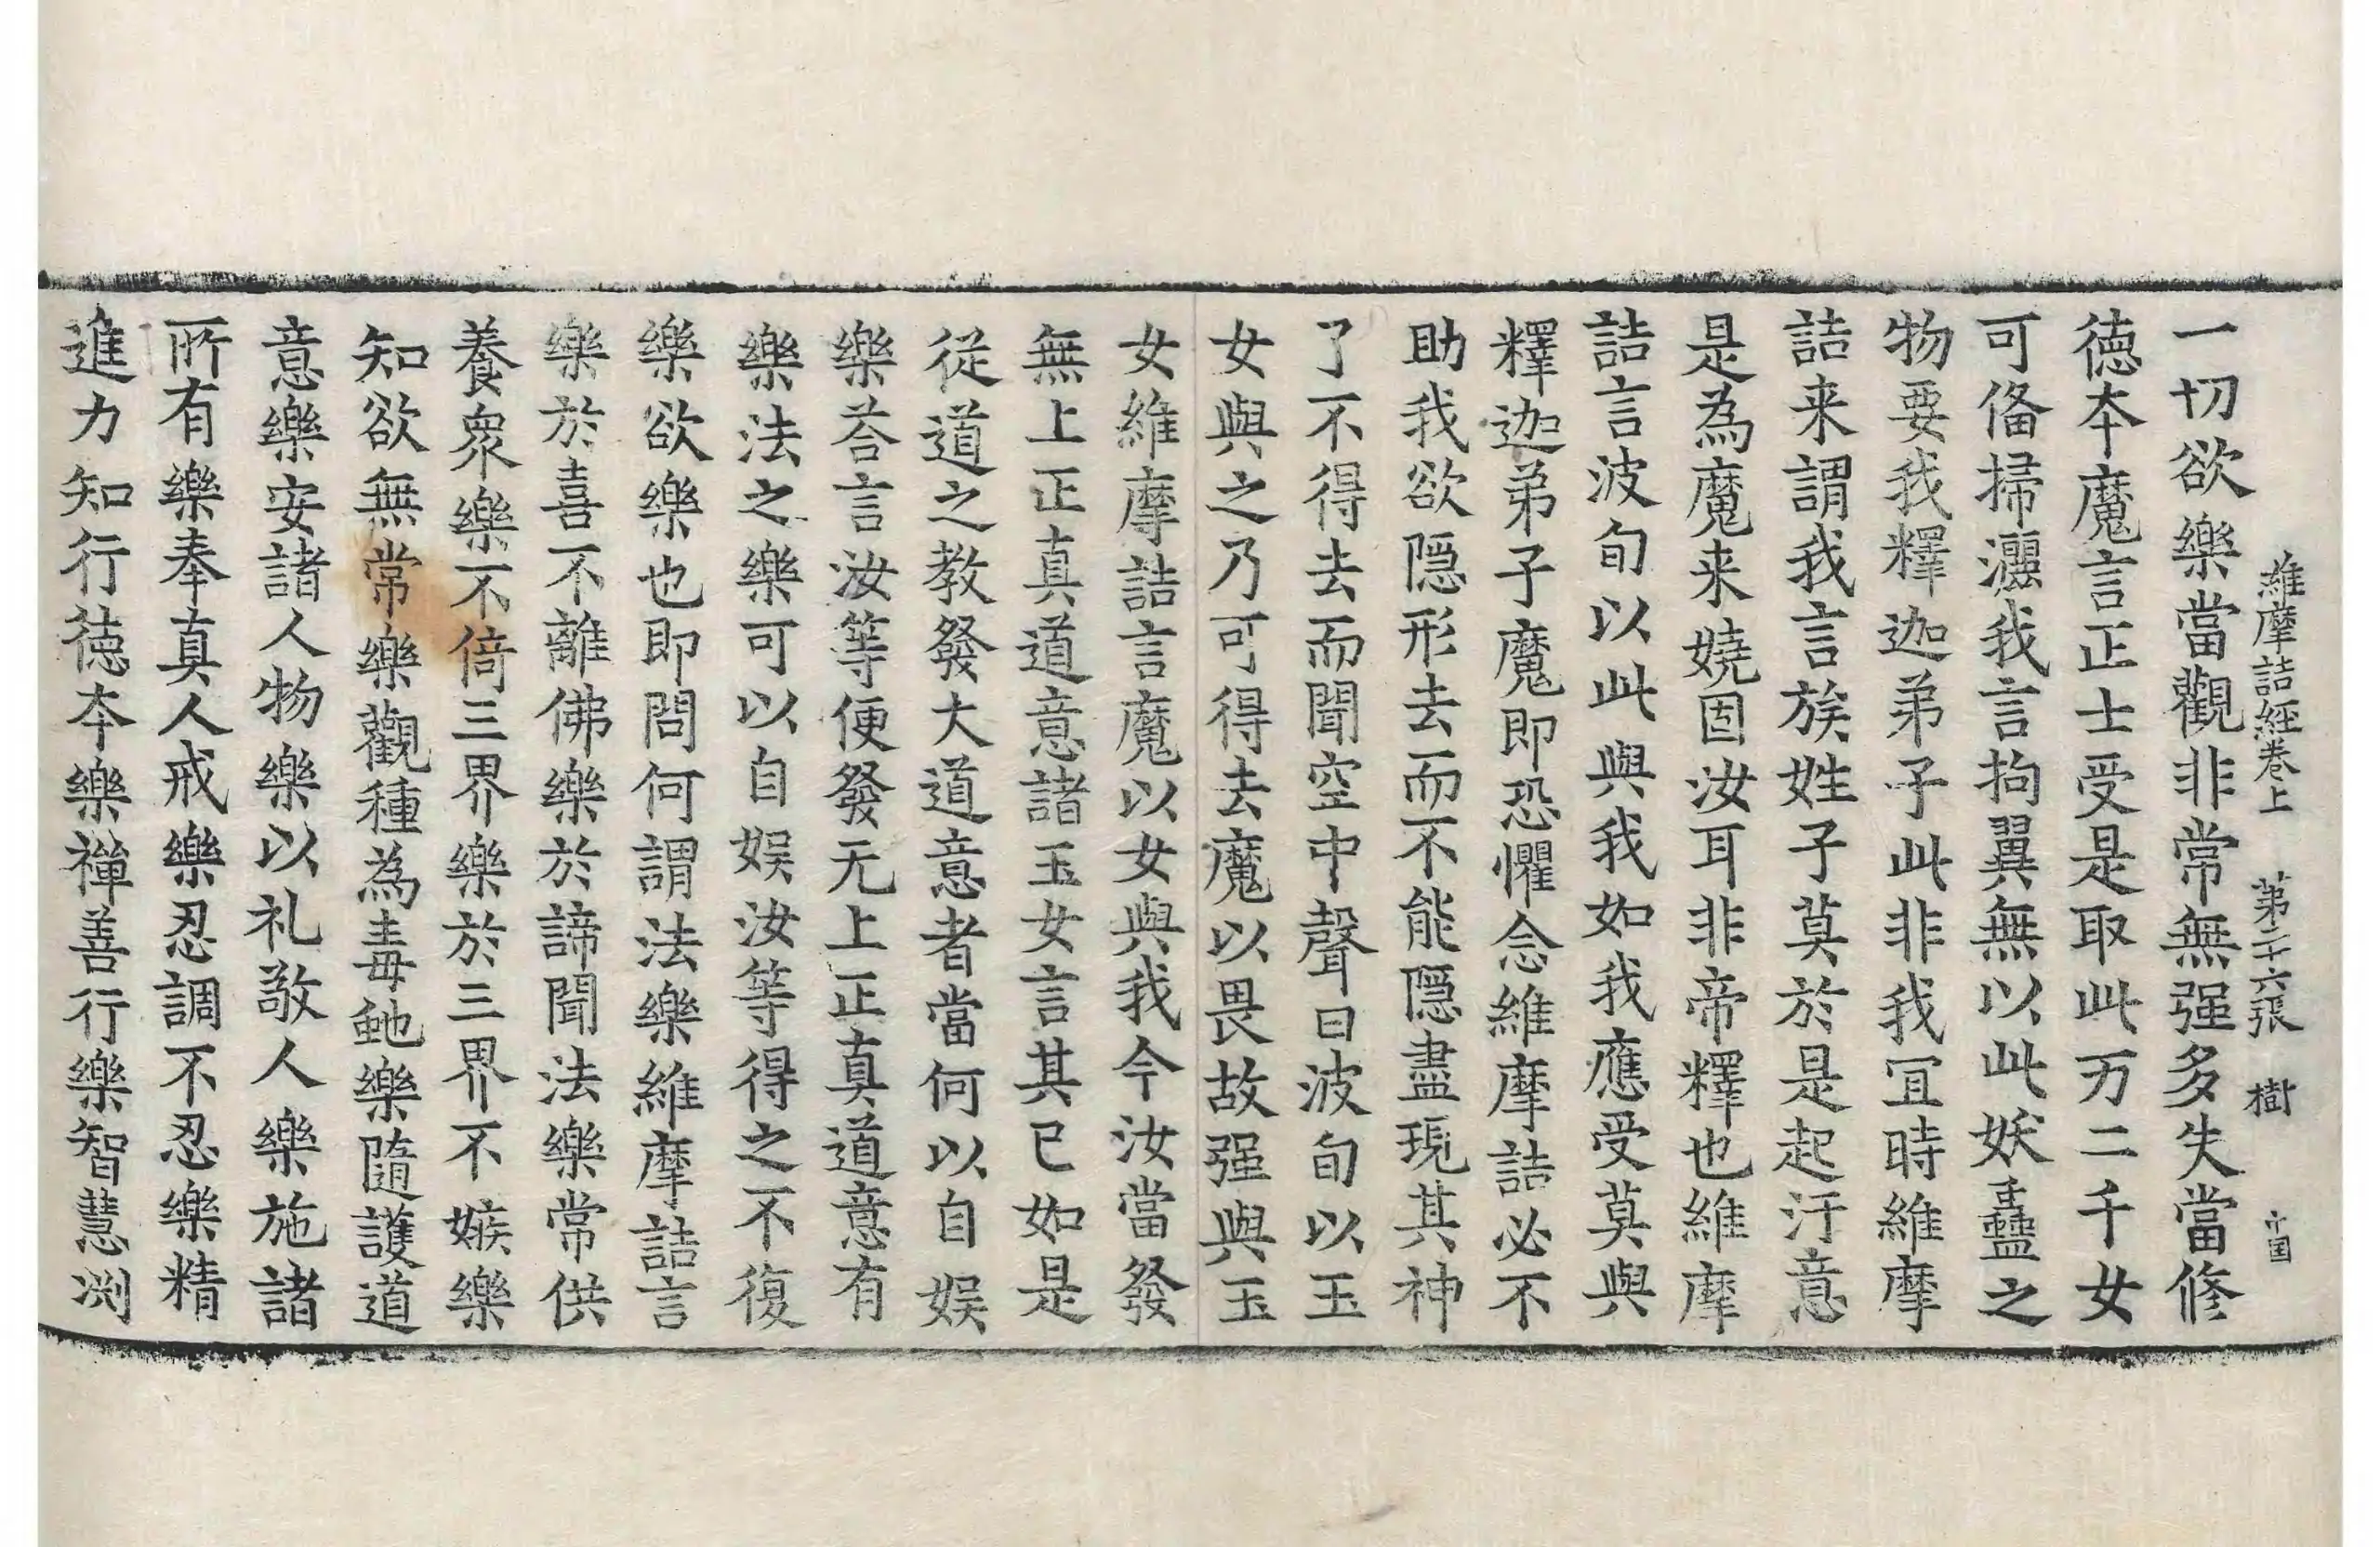 維摩詰經卷上　第二十六張　樹　十国
一切欲樂當觀非常無强多失當修
德夲魔言正士受是取此万二千女
可俻掃灑我言拘翼無以此妖蠱之
物要我釋迦弟子此非我冝時維摩
詰来謂我言族姓子莫於是起汙意
是為魔来嬈固汝耳非帝釋也維摩
詰言波旬以此與我如我應受莫與
釋迦弟子魔即恐懼念維摩詰必不
助我欲隱形去而不能隱盡現其神
了不得去而聞空中聲曰波旬以玉
女與之乃可得去魔以畏故强與玉
女維摩詰言魔以女與我今汝當發
無上正真道意諸玉女言其已如是
從道之教發大道意者當何以自娱
樂荅言汝等便發无上正真道意有
樂法之樂可以自娱汝等得之不復
樂欲樂也即問何謂法樂維摩詰言
樂於喜不離佛樂於諦聞法樂常供
養衆樂不倚三界樂於三界不嫉樂
知欲無常樂觀種為毒虵樂隨護道
意樂安諸人物樂以礼敬人樂施諸
所有樂奉真人戒樂忍調不忍樂精
進力知行德夲樂禪善行樂智慧渕